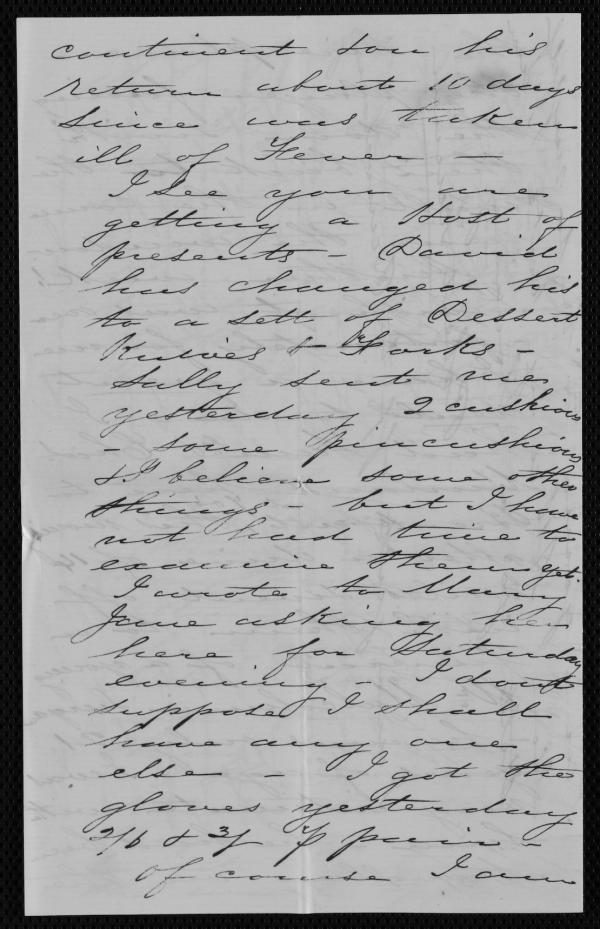 continent & on his
return about 10 days
since was taken
ill of Fever —
I see you are
getting a Host of
presents — David
has changed his
to a sett of Dessert
Knives & Forks —
Sally sent me
yesterday 2 cushions
— some pincushions
& I believe some other
things — but I have
not had time to
examine them yet.
I wrote to Mary
Jane asking her
here for Saturday
evening — I dont
suppose I shall
have any one
else — I got the
gloves yesterday
2/6 & 3/ p pair —
of course I am